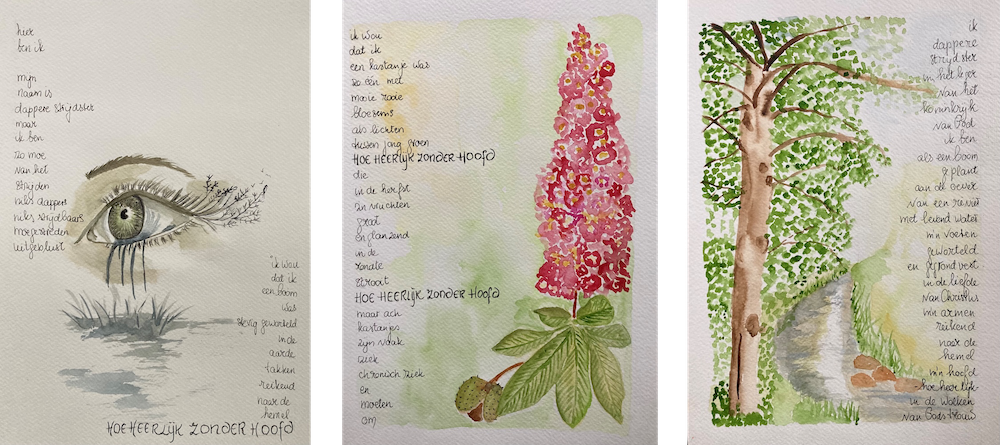 hier
ben ik
mijn
naam is
dappere strijdster
maar
ik ben
zo moe
van het
strijden
niks dappers
niks strijdbaars
moegestreden
uitgeblust
ik wou
dat ik
een boom
was
stevig geworteld
in de
aarde
takken
reikend
naar de
hemel
HOE HEERLIJK ZONDER HOOFD
ik wou
dat ik
een kastanje was
zo één met
mooie rooie
bloesems
als lichten
tussen jong groen
HOE HEERLIJK ZONDER HOOFD
die
in de herfst
zijn vruchten
groot
en glanzend
in de
rondte
strooit
HOE HEERLIJK ZONDER HOOFD
maar ach
kastanjes
zijn vaak
ziek
chronisch ziek
en
moeten
om
ik
dappere
strijdster
in het leger
van het
koninkrijk
van God
ik ben
als een boom
geplant
aan de oever
van een rivier
met levend water
m'n voeten
geworteld
en gegrondvest
in de liefde
van Christus
m'n armen
reikend
naar de
hemel
m'n hoofd
-hoe heerlijk-
in de wolken
van Gods trouw